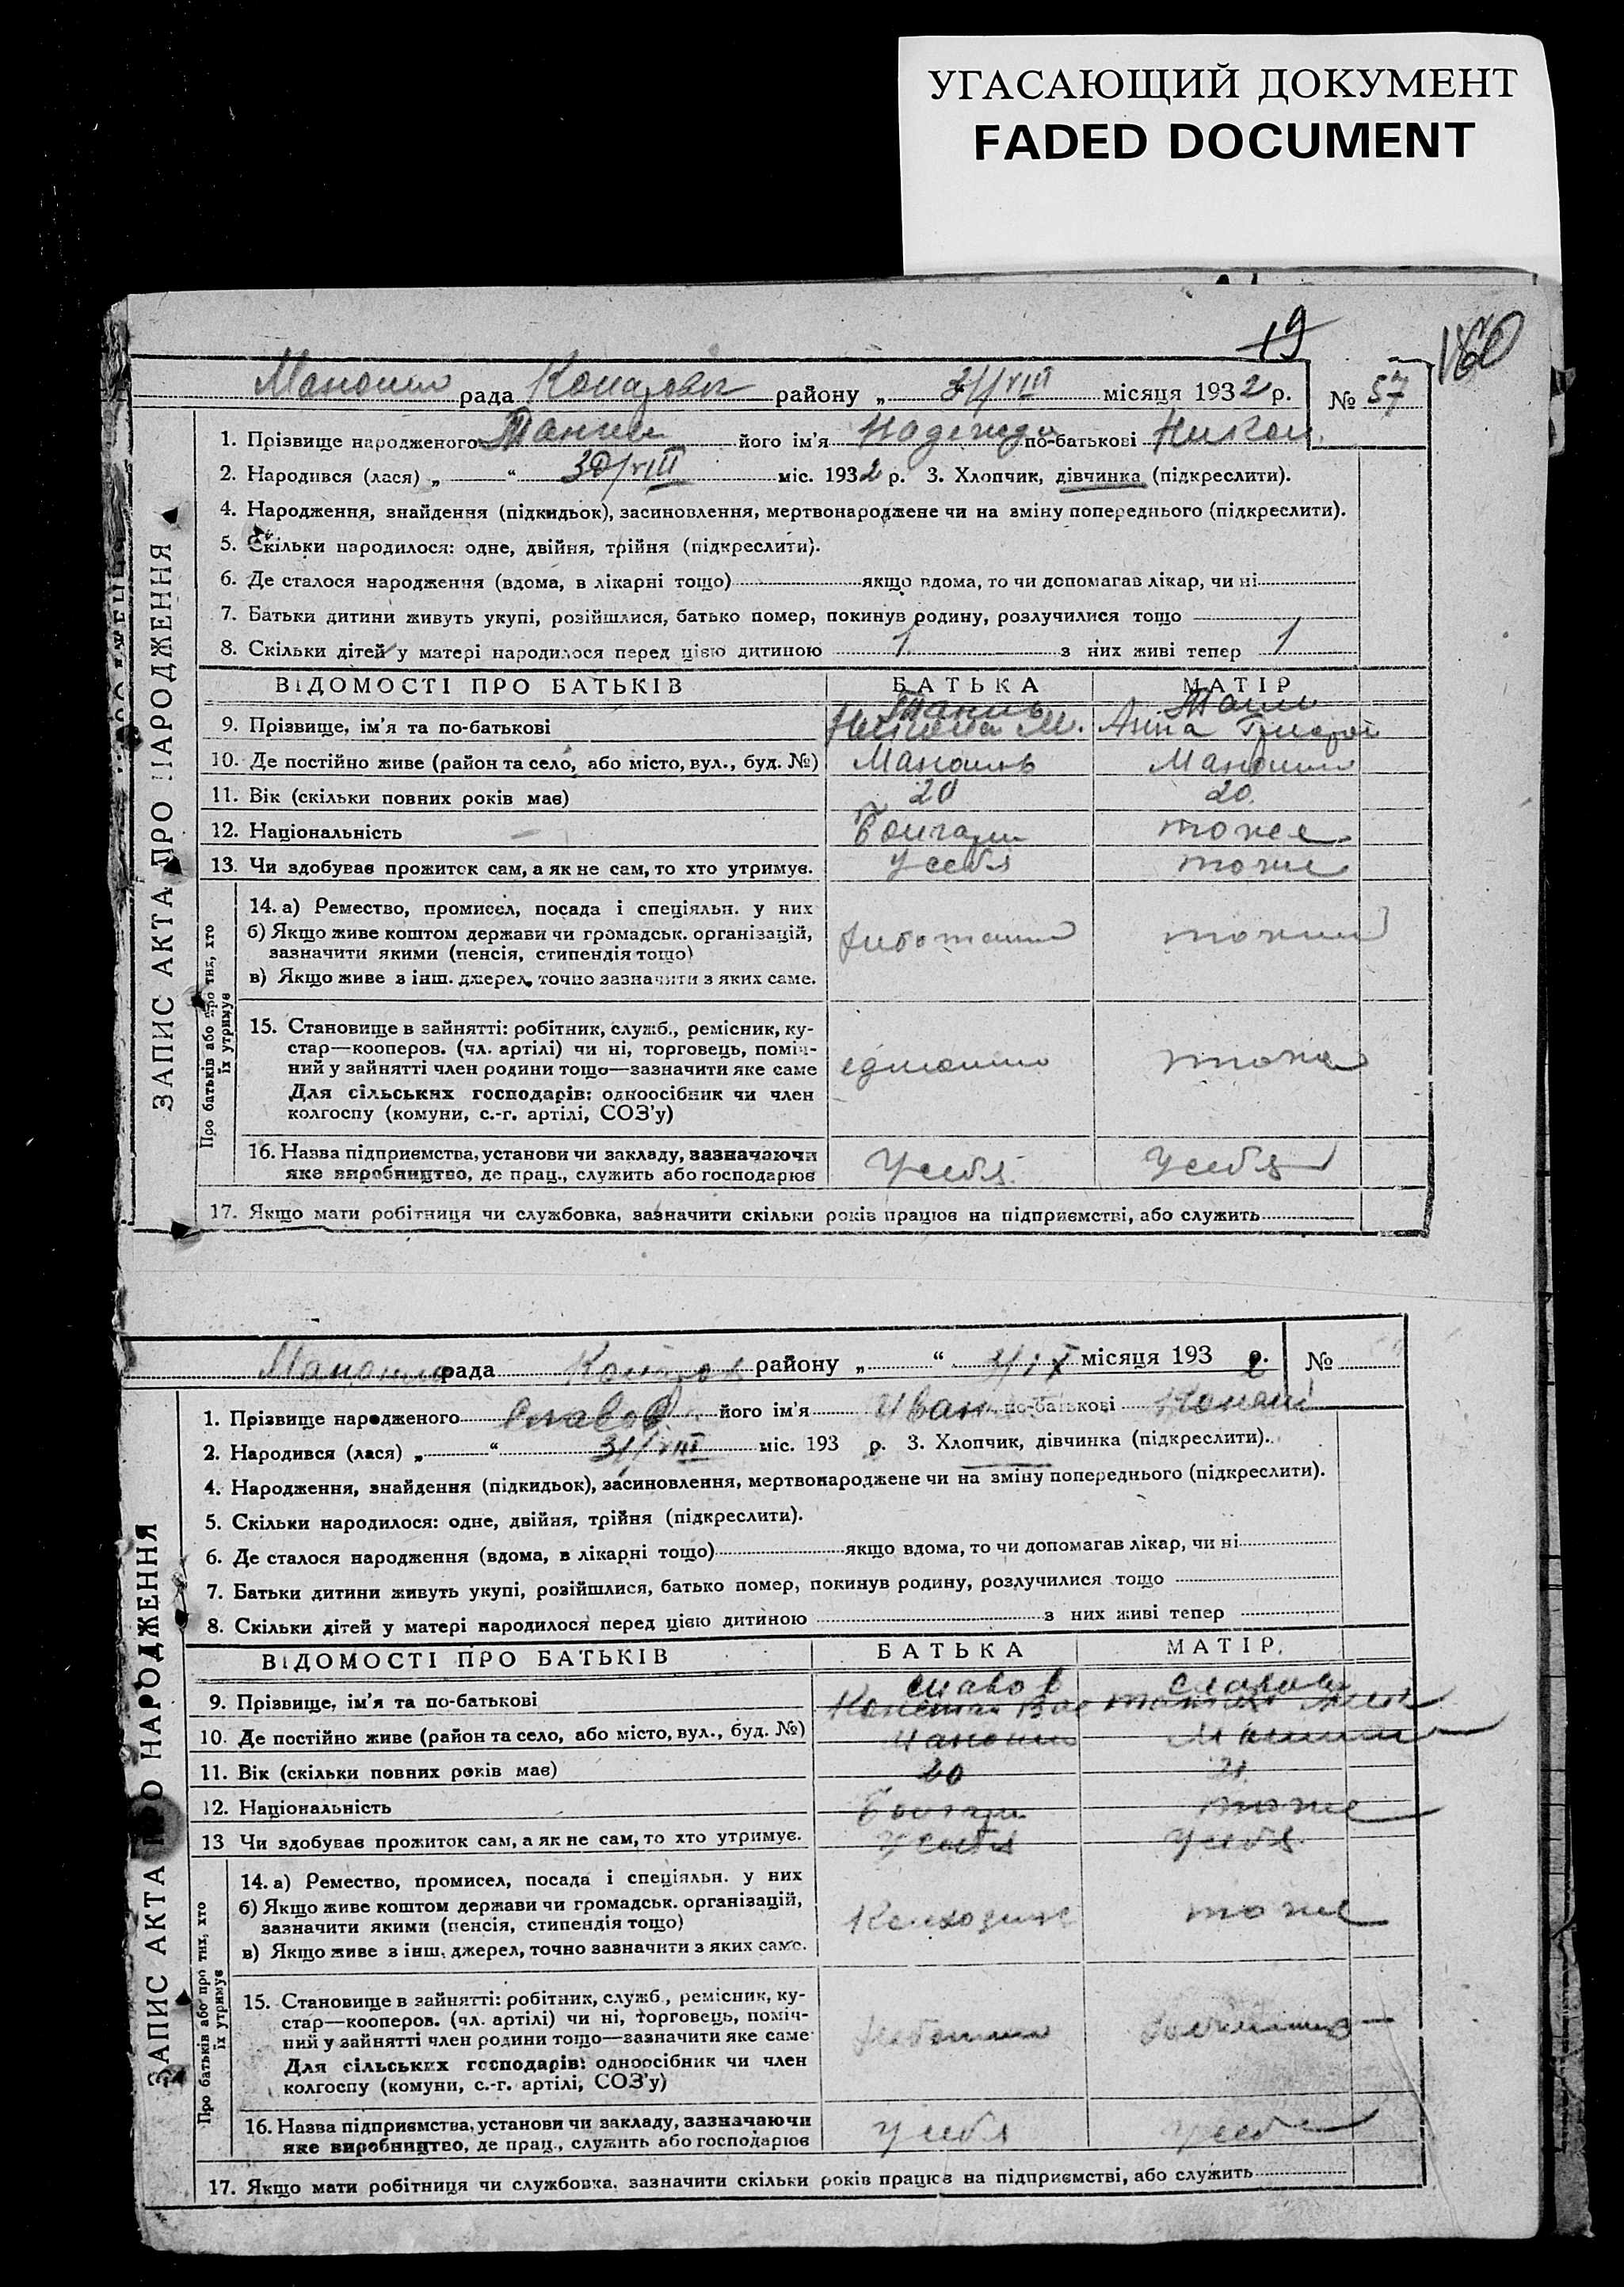 УГАСАЮЩИЙ ДОКУМЕНТ
FADED DOCUMENT
19
160
рада району „ 31/VIII місяця 1932 р. № 57
1. Прізвище народженого його ім'я Надежда по-батькові Никол.
2. Народився (лася) „ “ 30/VIII міс. 1932 р. 3. Хлопчик, дівчинка (підкреслити).
4. Народження, знайдення (підкидьок), засиновлення, мертвонароджене чи на зміну попереднього (підкреслити).
5. Скільки народилося: одне, двійня, трійня (підкреслити).
6. Де сталося народження (вдома, в лікарні тощо) якщо вдома, то чи допомагав лікар, чи ні
7. Батьки дитини живуть укупі, розійшлися, батько помер, покинув родину, розлучилися тощо
8. Скільки дітей у матері народилося перед цією дитиною 1 з них живі тепер 1
ВІДОМОСТІ ПРО БАТЬКІВ БАТЬКА МАТІР
9. Прізвище, ім'я та по-батькові Анна
10. Де постійно живе (район та село, або місто, вул., буд. №)
11. Вік (скільки повних років має) 20 20.
12. Національність тоже
13. Чи здобуває прожиток сам, а як не сам, то хто утримує. У себя тоже
14. а) Ремество, промисел, посада і спеціяльн. у них
б) Якщо живе коштом держави чи громадськ. організацій,
зазначити якими (пенсія, стипендія тощо)
в) Якщо живе з інш. джерел, точно зазначити з яких саме.
15. Становище в зайнятті: робітник, служб., ремісник, ку-
стар—кооперов. (чл. артілі) чи ні, торговець, поміч-
ний у зайнятті член родини тощо—зазначити яке саме
Для сільських господарів: одноосібник чи член
колгоспу (комуни, с.-г. артілі, СОЗ'у)
тоже
16. Назва підприємства, установи чи закладу, зазначаючи
яке виробництво, де прац., служить або господарює
У себя У себя
17. Якщо мати робітниця чи службовка, зазначити скільки років працює на підприємстві, або служить
ЗАПИС АКТА ПРО НАРОДЖЕННЯ
Про батьків або про тих, хто
їх утримує
рада району „ “ місяця 193 р. №
1. Прізвище народженого його ім'я Иван по-батькові
2. Народився (лася) „ “ 31/VIII міс. 193 р. 3. Хлопчик, дівчинка (підкреслити).
4. Народження, знайдення (підкидьок), засиновлення, мертвонароджене чи на зміну попереднього (підкреслити).
5. Скільки народилося: одне, двійня, трійня (підкреслити).
6. Де сталося народження (вдома, в лікарні тощо) якщо вдома, то чи допомагав лікар, чи ні
7. Батьки дитини живуть укупі, розійшлися, батько помер, покинув родину, розлучилися тощо
8. Скільки дітей у матері народилося перед цією дитиною з них живі тепер
ВІДОМОСТІ ПРО БАТЬКІВ БАТЬКА МАТІР.
9. Прізвище, ім'я та по-батькові
10. Де постійно живе (район та село, або місто, вул., буд. №)
11. Вік (скільки повних років має) 20
12. Національність тоже
13 Чи здобуває прожиток сам, а як не сам, то хто утримує. У себя У себя
14. а) Ремество, промисел, посада і спеціяльн. у них
б) Якщо живе коштом держави чи громадськ. організацій,
зазначити якими (пенсія, стипендія тощо)
в) Якщо живе з інш. джерел, точно зазначити з яких саме.
тоже
15. Становище в зайнятті: робітник, служб., ремісник, ку-
стар—кооперов. (чл. артілі) чи ні, торговець, поміч-
ний у зайнятті член родини тощо—зазначити яке саме
Для сільських господарів: одноосібник чи член
колгоспу (комуни, с.-г. артілі, СОЗ'у)
16. Назва підприємства, установи чи закладу, зазначаючи
яке виробництво, де прац., служить або господарює
У себя
17. Якщо мати робітниця чи службовка, зазначити скільки років працює на підприємстві, або служить
ЗАПИС АКТА ПРО НАРОДЖЕННЯ
Про батьків або про тих, хто
їх утримує